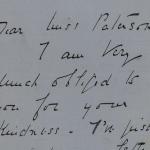 Dear Miss Paterson
I am very
much obliged to
you for your
kindness. I've just